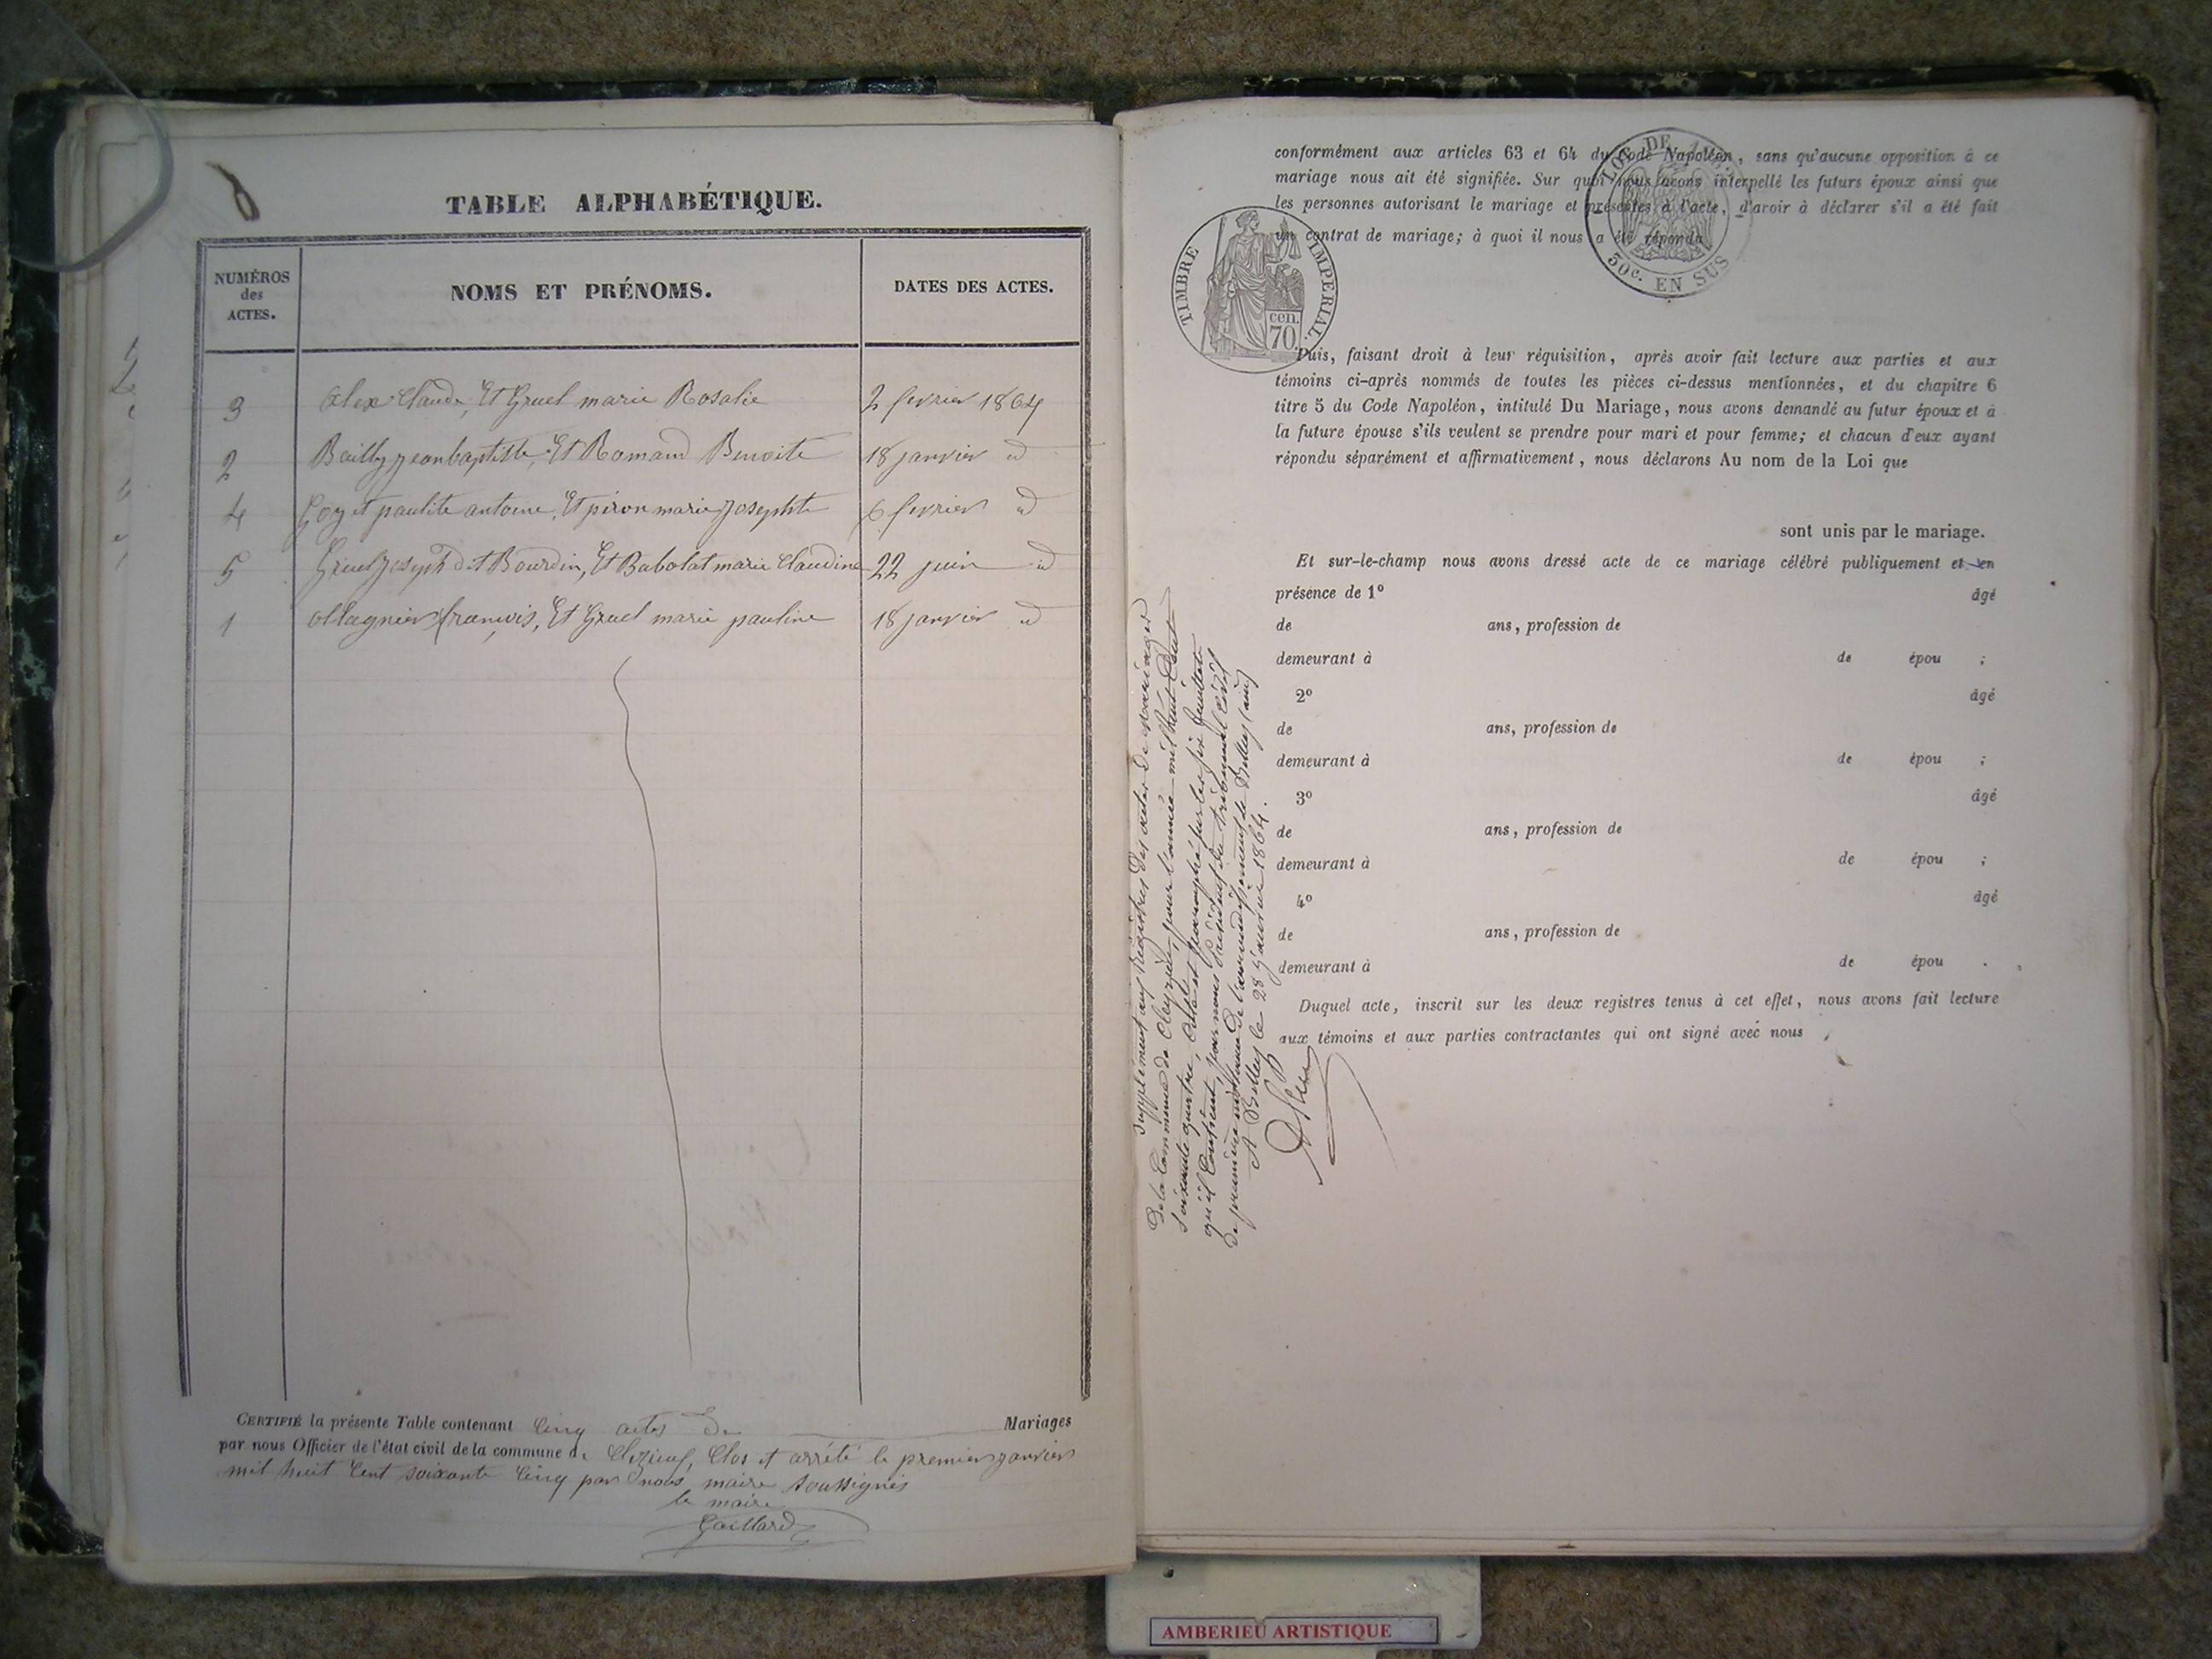 TABLE ALPHABÉTIQUE.
NUMÉROS
des
ACTES.
NOMS ET PRÉNOMS.
DATES DES ACTES.
3 Alex Claude, Et Gruel marie Rosalie 2 fevrier 1864
2 Bailly jean baptiste, Et Romand Benoite 18 janvier id
4 Goyet paulite antoine, Et piron marie josephte 6 fevrier id
5 Gruel joseph dit Bourdin, Et Babolat marie Claudine 22 juin id
1 Ollagnier francois, Et Gruel marie pauline 18 janvier id
CERTIFIÉ la présente Table contenant Cinq actes de Mariages
par nous Officier de l'état civil de la commune de Cleyzieu, Clos et arrété le premier janvier
mil huit Cent soixante Cinq par nous maire soussignés
le maire
Gaillard
conformément aux articles 63 et 64 du Code Napoléon, sans qu'aucune opposition à ce
mariage nous ait été signifiée. Sur quoi nous avons interpellé les futurs époux ainsi que
les personnes autorisant le mariage et présentes à l'acte, d'avoir à déclarer s'il a été fait
un contrat de mariage; à quoi il nous a été répondu
TIMBRE IMPÉRIAL.
cen.
70
50c. EN SUS
Puis, faisant droit à leur réquisition, après avoir fait lecture aux parties et aux
témoins ci-après nommés de toutes les pièces ci-dessus mentionnées, et du chapitre 6
titre 5 du Code Napoléon, intitulé Du Mariage, nous avons demandé au futur époux et à
la future épouse s'ils veulent se prendre pour mari et pour femme; et chacun d'eux ayant
répondu séparément et affirmativement, nous déclarons Au nom de la Loi que
sont unis par le mariage.
Et sur-le-champ nous avons dressé acte de ce mariage célébré publiquement et en
présence de 1º âgé
de ans, profession de
demeurant à de épou ;
2º âgé
de ans, profession de
demeurant à de épou ;
3º âgé
de ans, profession de
demeurant à de épou ;
4º âgé
de ans, profession de
demeurant à de épou .
Duquel acte, inscrit sur les deux registres tenus à cet effet, nous avons fait lecture
aux témoins et aux parties contractantes qui ont signé avec nous
Supplément aux Registres des actes de Mariages
de la Commune de Cleyzieu, pour l'année mil huit Cent
soixante quatre, Coté et paraphé sur les six feuillets
qu'il Contient, par nous Président du tribunal Civil
de première instance de l'arrondissement de Belley (ain)
A Belley le 28 Janvier 1864.
AMBERIEU ARTISTIQUE